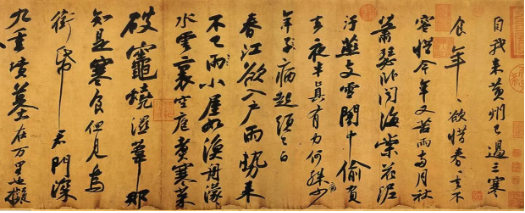 自我来黄州已過三寒
食年々欲惜春春去不
容惜今年又苦雨兩月秋
蕭瑟卧聞海棠花泥
汙燕支雪闇中偷負
去夜半真有力何殊少
年子病起頭已白
春江欲入户雨勢来
不已雨小屋如漁舟濛々
水雲裏空庖煮寒菜
破竈燒濕葦那
知是寒食但見烏
銜帋君門深
九重墳墓在万里也擬